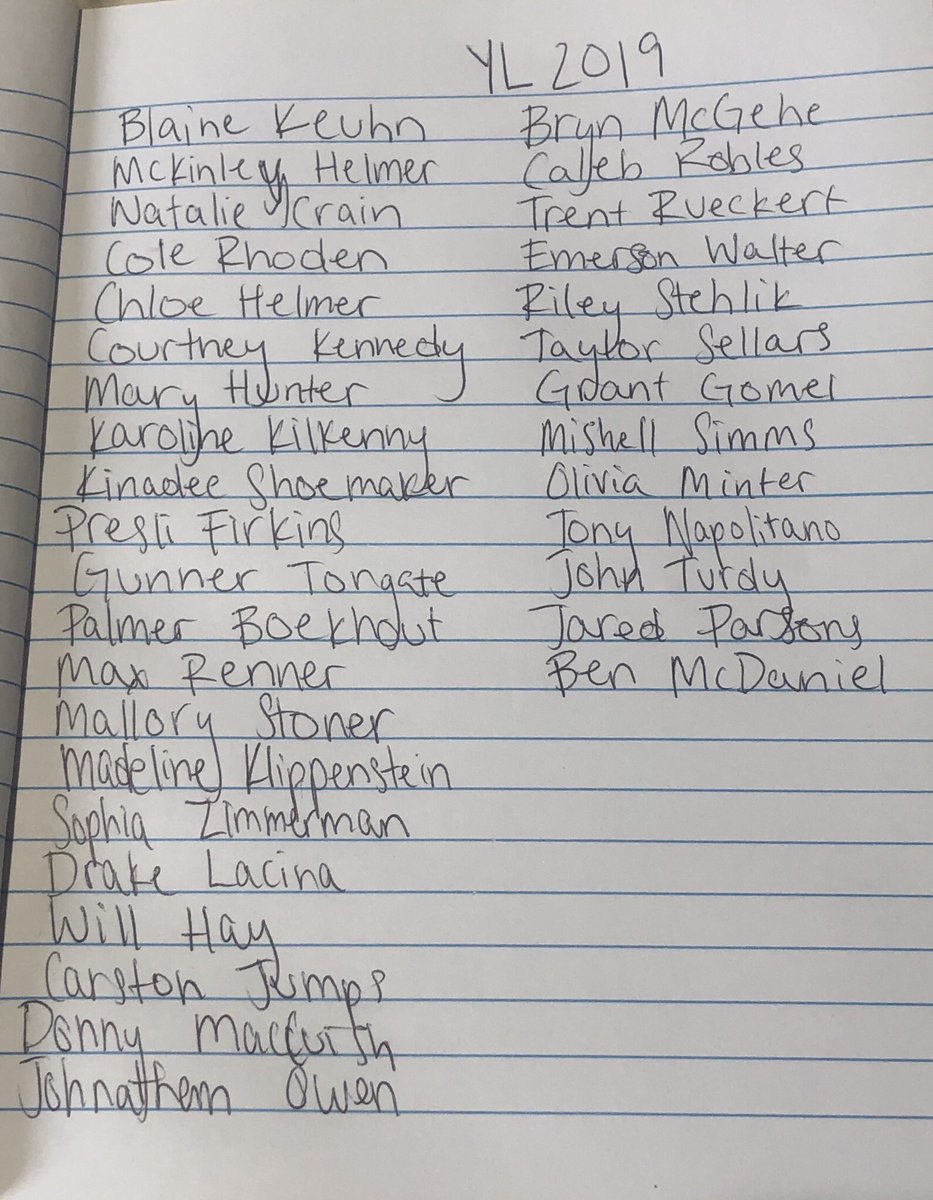 YL 2019
Blaine Keuhn
McKinley Helmer
Natalie Crain
Cole Rhoden
Chloe Helmer
Courtney Kennedy
Mary Hunter
Karoline Kilkenny
Kinadee Shoemaker
Presli Firkins
Gunner Tongate
Palmer Boekhout
Max Renner
Mallory Stoner
Madeline Klippenstein
Sophia Zimmerman
Drake Lacina
Will Hay
Carston Jumps
Donny
Johnathem Owen
Bryn McGehe
Caleb Robles
Trent Rueckert
Emerson Walter
Riley Stehlik
Taylor Sellars
Grant Gomel
Mishell Simms
Olivia Minter
Tony Napolitano
John Turdy
Jared Parsons
Ben McDaniel